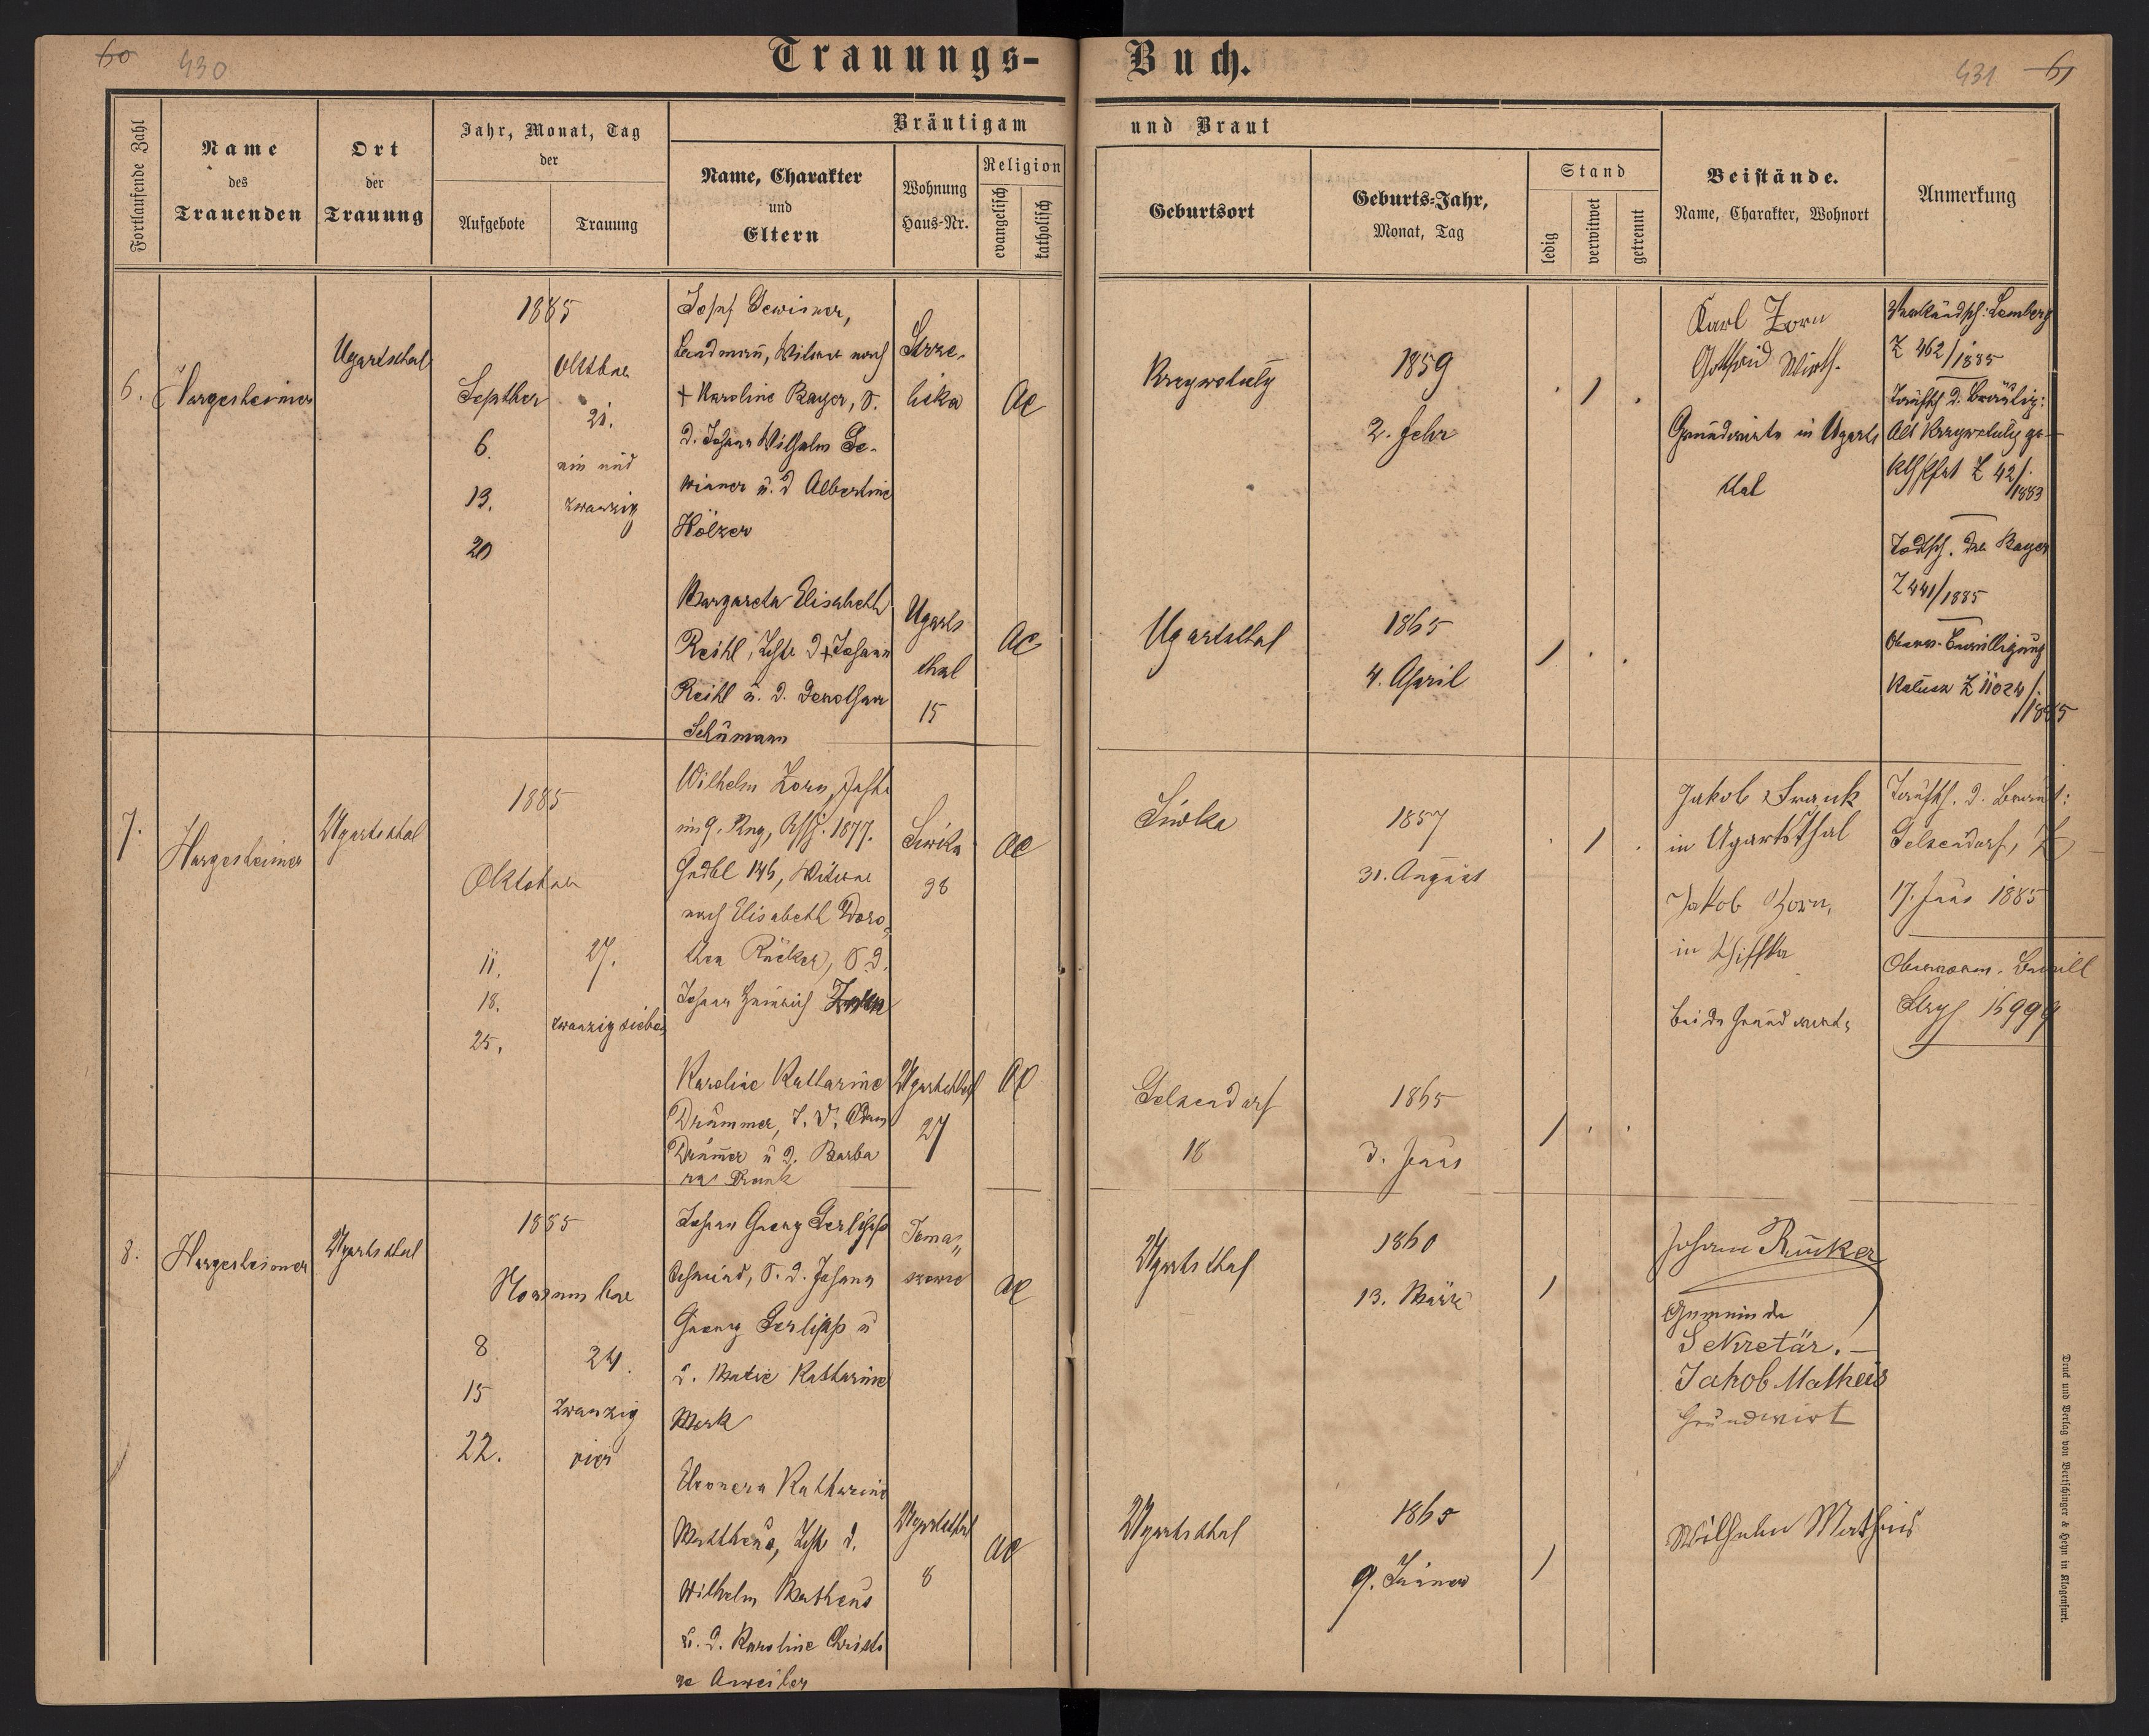 60 430
Trauungs-Buch.
431 61
Fortlaufende Zahl
Name des Trauenden
Ort der Trauung
Jahr, Monat, Tag der
Aufgebote
Trauung
Bräutigam und Braut
Name, Charakter und Eltern
Wohnung Haus-Nr.
Religion
evangelisch
katholisch
Geburtsort
Geburts-Jahr, Monat, Tag
Stand
ledig
verwitwet
getrennt
Beistände.
Name, Charakter, Wohnort
Anmerkung
6.
Hargesheimer
Ugartsthal
1885
Septber
6.
13.
20
Oktober
21.
ein und
zwanzig
Josef Gewinner,
Landmann, Witwer nach
+ Karoline Bayer, S.
d. Johann Wilhelm Ge-
winner u. d Albertine
Hölzer
Strze-
liska
AC
Krzywotuly
1859
2. Febr
. 1 .
Karl Zorn
Gottfried Wirth.
Grundwirte in Ugarts
thal
Verkündsch: Lemberg
Z 462/1885
Taufsch d. Bräutig:
Alt Krzywotuly
Z 42/1883
Todtsch. der Bayer
Z 441/1885
Oberv. Bewilligung
Kalusz Z 11024/1885
Margareta Elisabeth
Reihl, Tchtr d + Johann
Reihl u. d. Dorothea
Schumann
Ugarts
thal
15
AC
Ugartsthal
1865
4. April
1 . .
7.
Hargesheimer
Ugartsthal
1885
Oktober
11.
18.
25.
27.
zwanzig sieben
Wilhelm Zorn,
1877.
146, Witwer
nach Elisabeth Doro-
thea Rücker, S. d.
Johann Heinrich Zorn
Siwka
98
AC
Siwka
1857
31. August
. 1 .
Jakob Frank
in Ugartsthal
Jakob Zorn,
in Schiffka
beide Grundwirte
Taufsch. d. Braut:
Gelsendorf, Z
17. Juni 1885
Obervorm. Bewill
Stryj 15999
Karoline Katharine
Drummer, T. d. Adam
Drummer u d. Barba
ra Frank
Ugartsthal
27
AC
Gelsendorf
18
1865
3. Juni
1 . .
8.
Hargesheimer
Ugartsthal
1885
November
8
15
22.
24.
zwanzig
vier
Johann Georg Gerlipp
Schmied, S. d. Johann
Georg Gerlipp u
d. Marie Katharine
Merk
Toma-
szowce
AC
Ugartsthal
1860
13. März
1
Johann Rücker
Gemeinde
Sekretär. —
Jakob Matheis
Grundwirt
Eleonora Katharine
Mattheus, Tchtr d.
Wilhelm Matheus
u. d. Karoline Christi
ne Anweiler
Ugartsthal
8
AC
Ugartsthal
1865
9. Jänner
1
Wilhelm Matheis
Druck und Verlag von Bertschinger & Heyn in Klagenfurt.